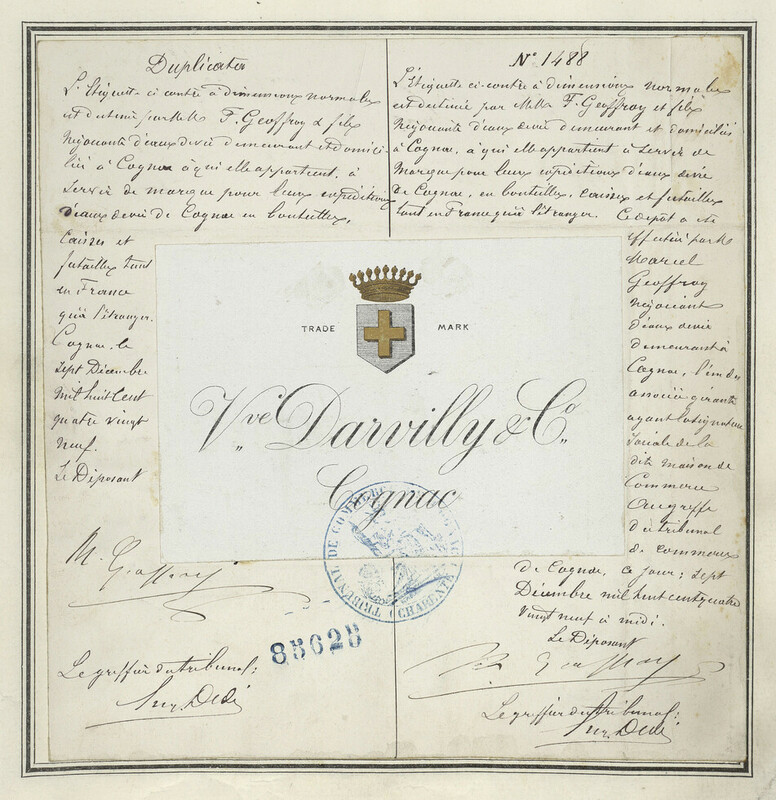 Duplicata
L'étiquette ci-contre à dimensions normales
est destinée par MM. F. Geoffroy & fils
Négociants d'eaux de vie demeurant et domici-
liés à Cognac à qui elle appartient, à
servir de marque pour leurs expéditions
d'eaux de vie de Cognac en bouteilles,
Caisses et
futailles tant
en France
qu'à l'étranger.
Cognac, le
Sept Décembre
mil huit Cent
quatre vingt
neuf.
Le Déposant
M. Geoffroy
Le greffier du tribunal:
N° 1488
L'étiquette ci-contre à dimensions normales
est destinée par MM. F. Geoffroy et fils
Négociants d'eaux de vie demeurant et domiciliés
à Cognac, à qui elle appartient à servir de
Marque pour leurs expéditions d'eaux de vie
de Cognac, en bouteilles, caisses et futailles
tant en France qu'à l'étranger. Ce dépôt a été
effectué par M.
Marcel
Geoffroy
négociant
d'eaux de vie
demeurant à
Cognac, l'un des
associés gérants
ayant la signature
sociale de la
dite maison de
Commerce
Au greffe
du tribunal
de commerce
de Cognac, ce jour; sept
Décembre mil huit cent quatre
vingt neuf à midi.
Le Déposant
M. Geoffroy
Le greffier du tribunal:
TRADE MARK
Vve Darvilly & Co.
Cognac
TRIBUNAL DE COMMERCE
CHARENTE
85628